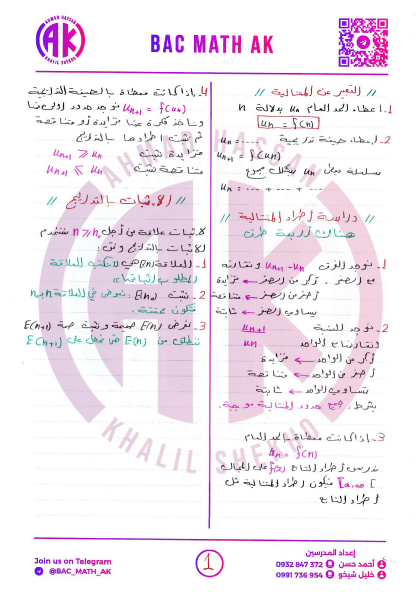 AHMAD HASSAN
AK
KHALIL SHEKHO
BAC MATH AK
// التعبير عن المتتالية //
1- اعطاء الحد العام uₙ بدلالة n
uₙ = f(n)
2- إعطاء صيغة تدريجية uₙ = ....
uₙ₊₁ = f(uₙ)
uₙ بشكل مجموع
uₙ = ... + ... + ...
// دراسة اطراد المتتالية //
هناك أربعة طرق
1- نوجد الفرق uₙ₊₁ - uₙ ونقارنه
مع الصفر. أكبر من الصفر ← متزايدة
أصغر من الصفر ← متناقصة
يساوي الصفر ← ثابتة
2- نوجد النسبة uₙ₊₁
uₙ ونقارنها مع الواحد
أكبر من الواحد ← متزايدة
أصغر من الواحد ← متناقصة
تساوي الواحد ← ثابتة
بشرط جميع حدود المتتالية موجبة.
3- إذا كانت معطاة بالحد العام
uₙ = f(n)
ندرس اطراد التابع f(x) على المجال
فيكون اطراد المتتالية مثل
اطراد التابع
4- إذا كانت معطاة بالصيغة التدريجية
uₙ₊₁ = f(uₙ) نوجد حدود أولى منها
ونأخذ فكرة عنها متزايدة أو متناقصة
ثم نثبت اطرادها بالتدريج
متزايدة نثبت uₙ₊₁ ≥ uₙ
متناقصة نثبت uₙ₊₁ ≤ uₙ
// الإثبات بالتدريج //
لإثبات علاقة من أجل n ≥ n₀ نستخدم
الإثبات بالتدريج وفق:
1- العلاقة E(n) هي
المطلوب إثباتها
2- نثبت E(n₀) نعوض في العلاقة n = n₀
فتكون محققة.
3- نفرض E(n) صحيحة ونثبت صحة E(n+1)
ننطلق من E(n) حتى نحصل على E(n+1)
AHMAD HASSAN
KHALIL SHEKHO
Join us on Telegram
@BAC_MATH_AK
1
إعداد المدرسين
أحمد حسن 0932 847 372
خليل شيخو 0991 736 954